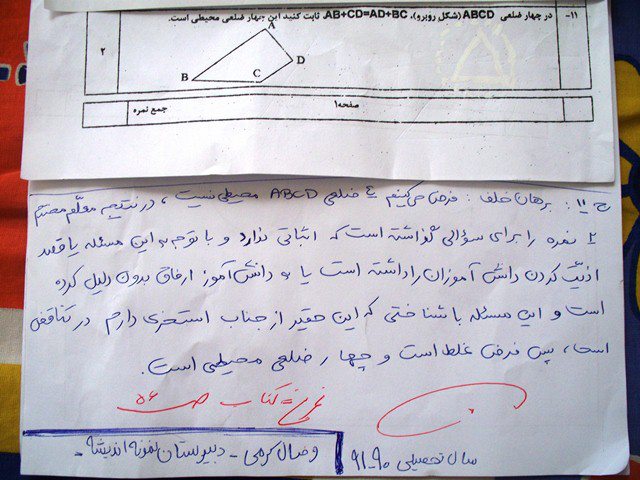 ۱۱- در چهار ضلعی ABCD (شکل روبرو)، AB+CD=AD+BC، ثابت کنید این چهار ضلعی محیطی است.
A
D
B
C
۲
صفحه۱
جمع نمره
ج ۱۱: برهان خلف: فرض می‌کنیم ۴ ضلعی ABCD محیطی نیست، در نتیجه معلم محترم
۲ نمره را برای سؤالی گذاشته است که اثباتی ندارد و با توجه به این مسئله یا قصد
اذیّت کردن دانش آموزان را داشته است یا به دانش آموز ارفاق بدون دلیل کرده
است و این مسئله با شناختی که این حقیر از جناب استخری دارم در تناقض
است، پس فرض غلط است و چهار ضلعی محیطی است.
کتاب ص ۵۶
وصال کرمی - دبیرستان نمونه اندیشه -
سال تحصیلی ۹۰-۹۱